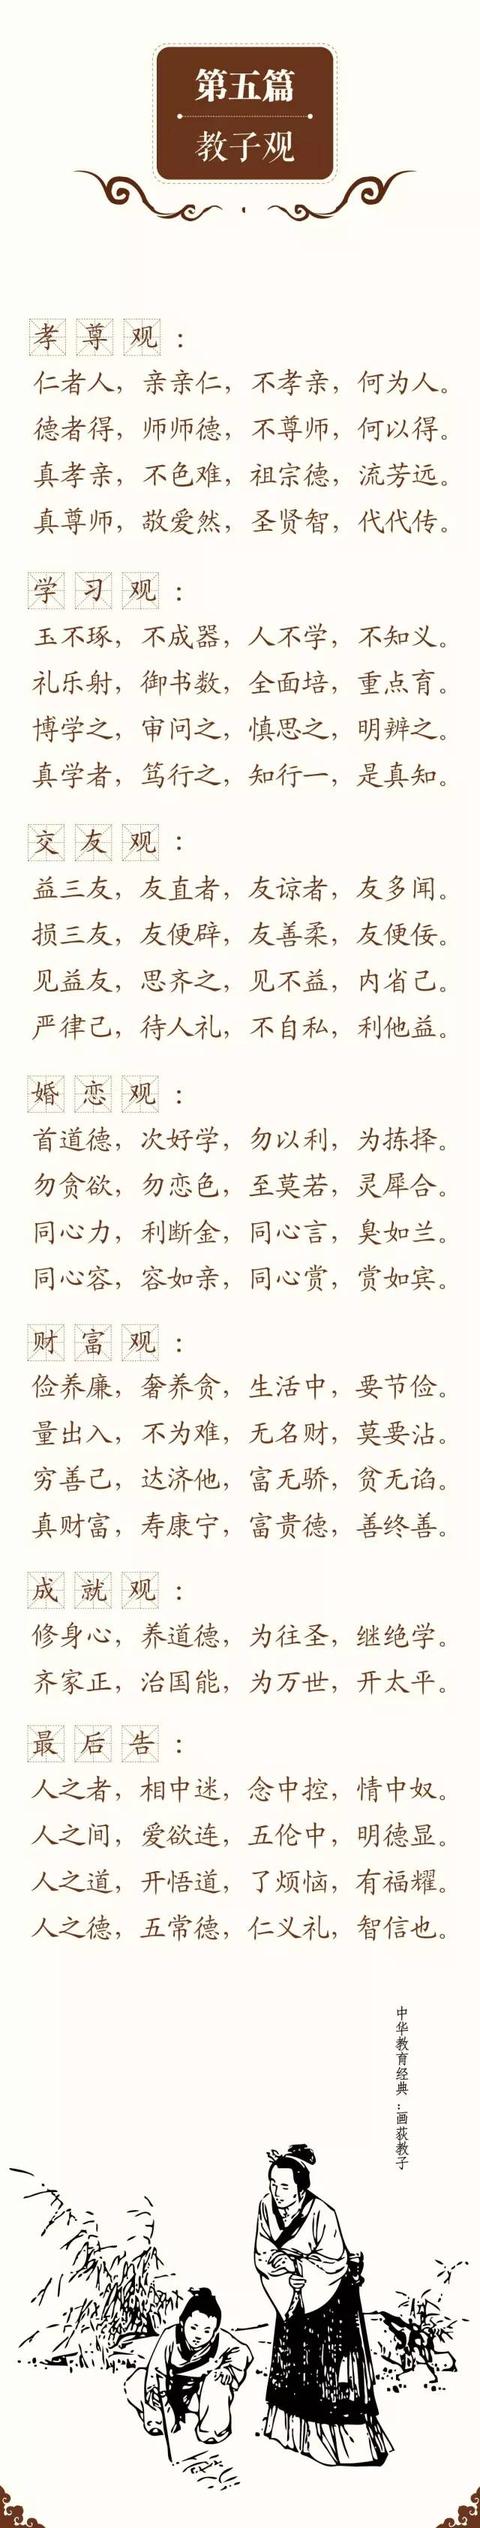 第五篇
教子观
孝尊观：
仁者人，亲亲仁，不孝亲，何为人。
德者得，师师德，不尊师，何以得。
真孝亲，不色难，祖宗德，流芳远。
真尊师，敬爱然，圣贤智，代代传。
学习观：
玉不琢，不成器，人不学，不知义。
礼乐射，御书数，全面培，重点育。
博学之，审问之，慎思之，明辨之。
真学者，笃行之，知行一，是真知。
交友观：
益三友，友直者，友谅者，友多闻。
损三友，友便辟，友善柔，友便佞。
见益友，思齐之，见不益，内省己。
严律己，待人礼，不自私，利他益。
婚恋观：
首道德，次好学，勿以利，为拣择。
勿贪欲，勿恋色，至莫若，灵犀合。
同心力，利断金，同心言，臭如兰。
同心容，容如亲，同心赏，赏如宾。
财富观：
俭养廉，奢养贪，生活中，要节俭。
量出入，不为难，无名财，莫要沾。
穷善己，达济他，富无骄，贫无谄。
真财富，寿康宁，富贵德，善终善。
成就观：
修身心，养道德，为往圣，继绝学。
齐家正，治国能，为万世，开太平。
最后告：
人之者，相中迷，念中控，情中奴。
人之间，爱欲连，五伦中，明德显。
人之道，开悟道，了烦恼，有福耀。
人之德，五常德，仁义礼，智信也。
中华教育经典：画荻教子